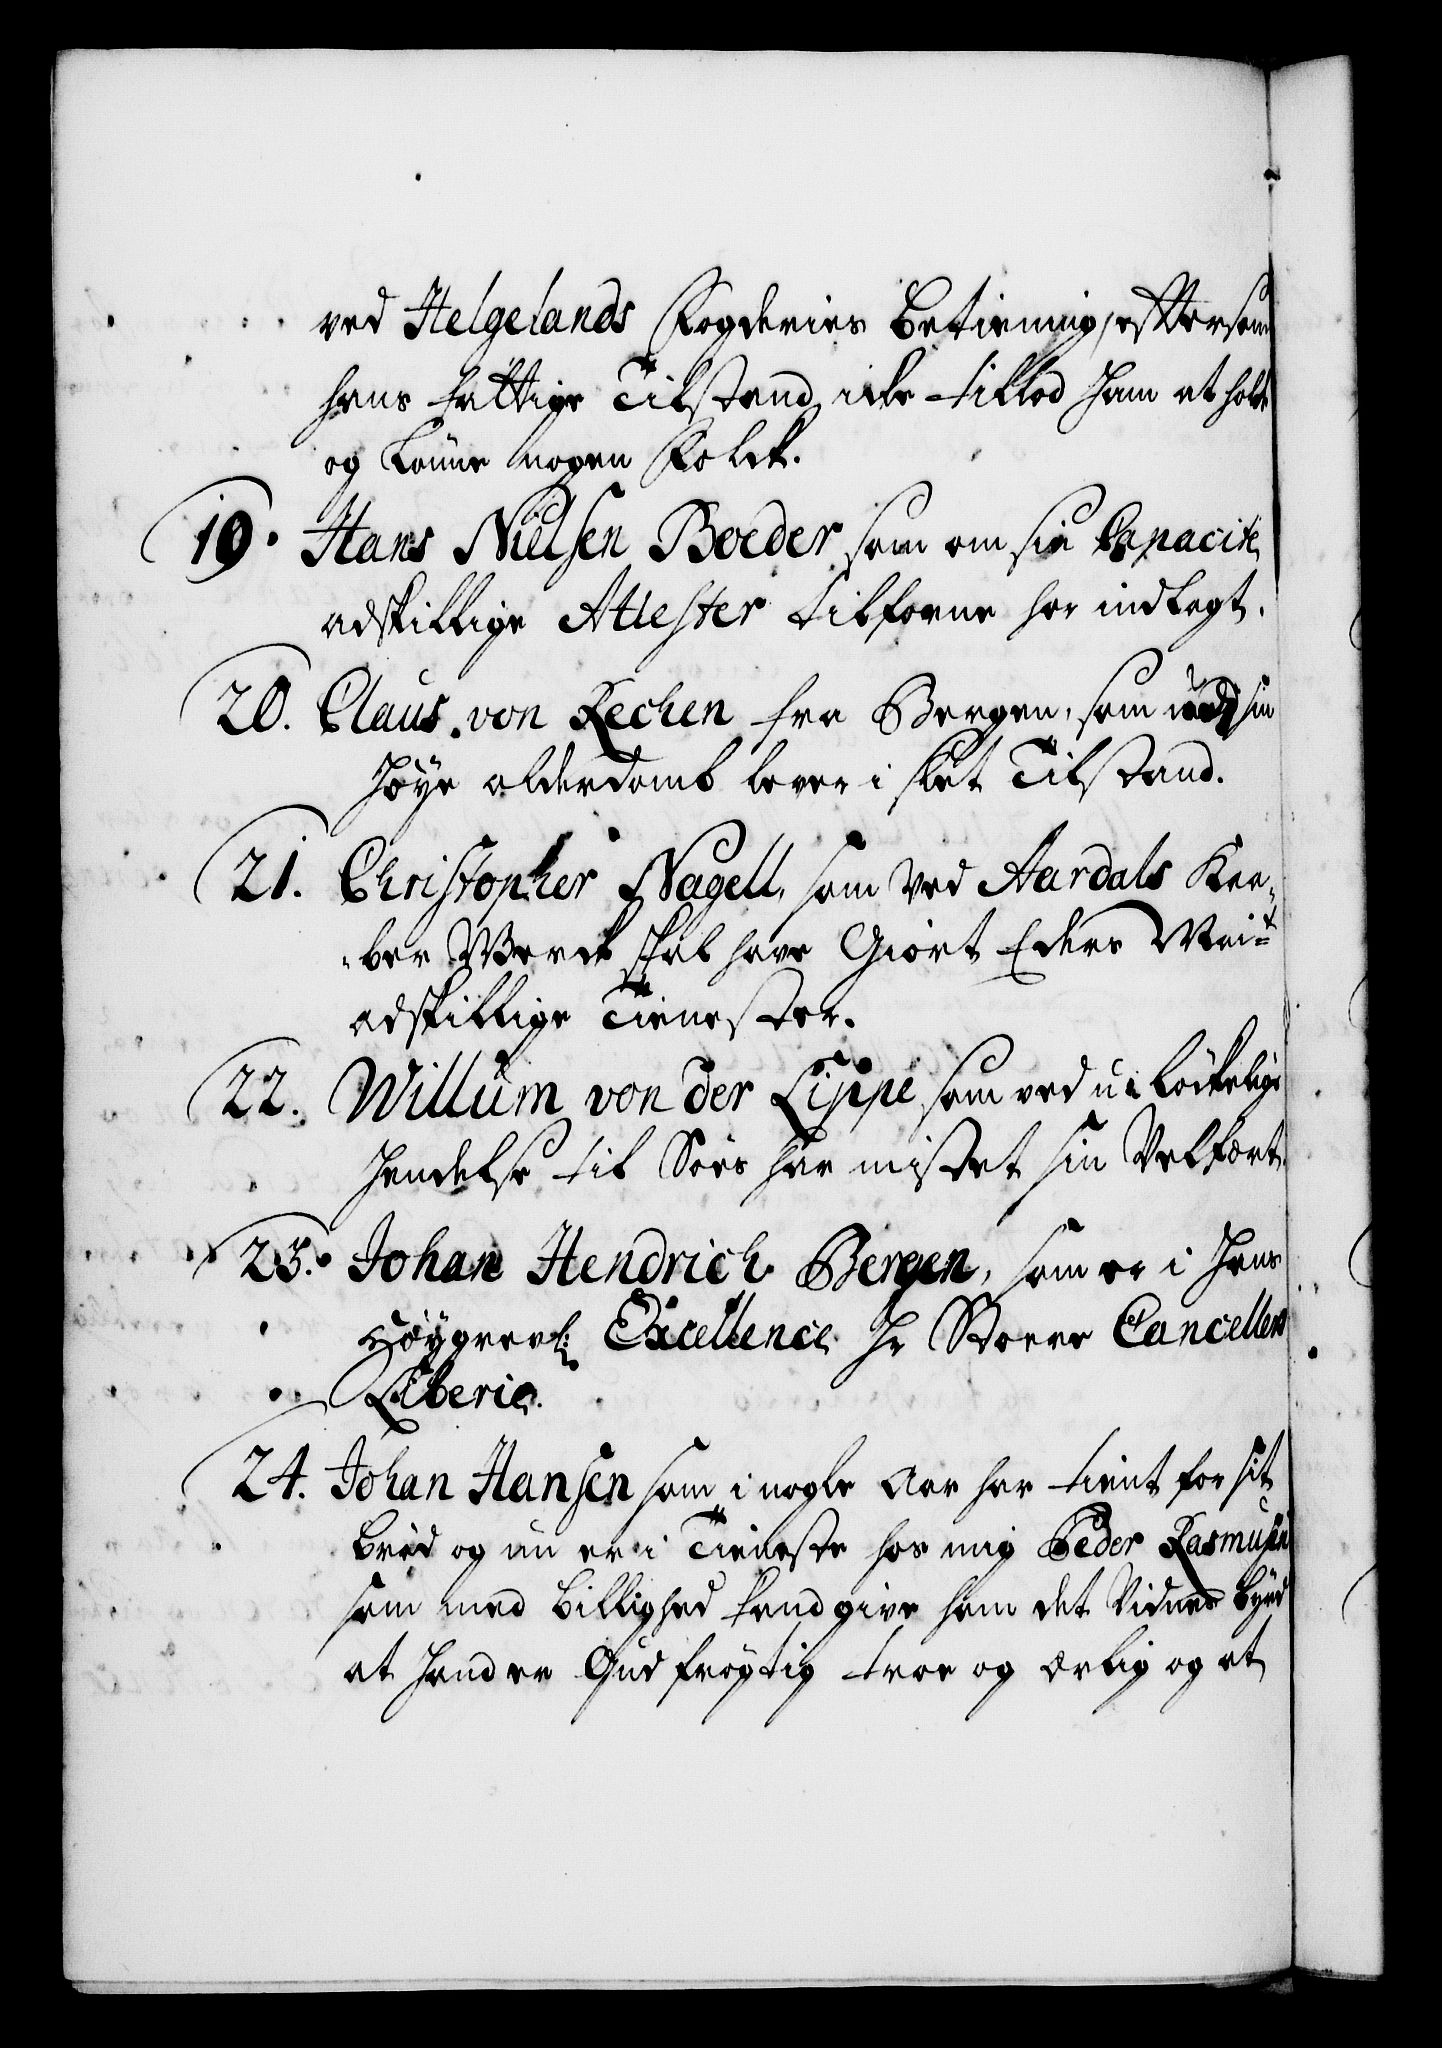 ved Helgelands Fogderies Betiening, efftersom
hans fattige Tilstand icke tillod ham at holde
og Lønne nogen Folck.
19. Hans Nielsen Boeder som om sin Capacite
adskillige Attester tilforne har indlagt.
20. Claus von Rechen fra Bergen, som udj sin
høye alderdomb lever i slet Tilstand.
21. Christopher Nagell, som ved Aardals Kaa-
-ber Werck skal have Giort Eders Mait
adskillige Tienester.
22. Willum von der Lippe som ved u-løckelige
hendelse til Søes har mistet sin Velfært
23. Johan Hendrich Bergen, som er i hans
Høygrevl: Excellence Hr Stoere Cancellers
Liberie.
24. Johan Hansen som i nogle Aar har tient for sit
brød og nu er i Tieneste hos mig Peder Rasmusen
som med billighed kand give ham det Vidnesbyrd
at hand er Gudfrøgtig troe og ærlig og at